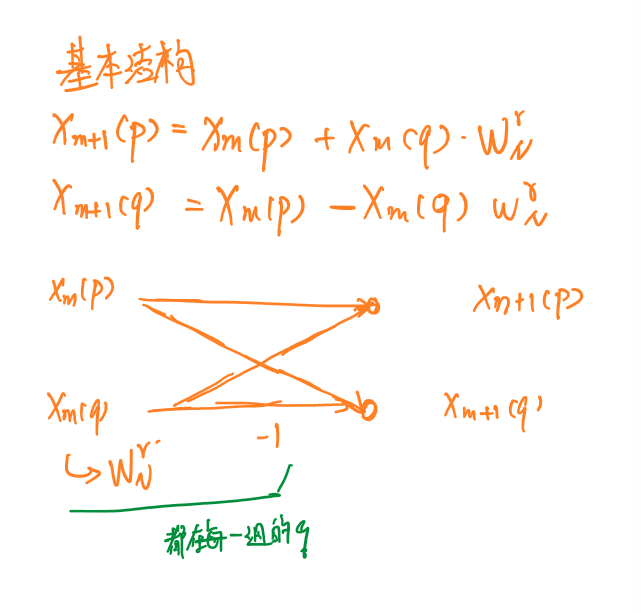 基本结构
X_{m+1}(p) = X_m(p) + X_m(q) · W_N^r
X_{m+1}(q) = X_m(p) - X_m(q) W_N^r
X_m(p) X_{m+1}(p)
X_m(q) X_{m+1}(q)
-1
W_N^r
都在每一组的q